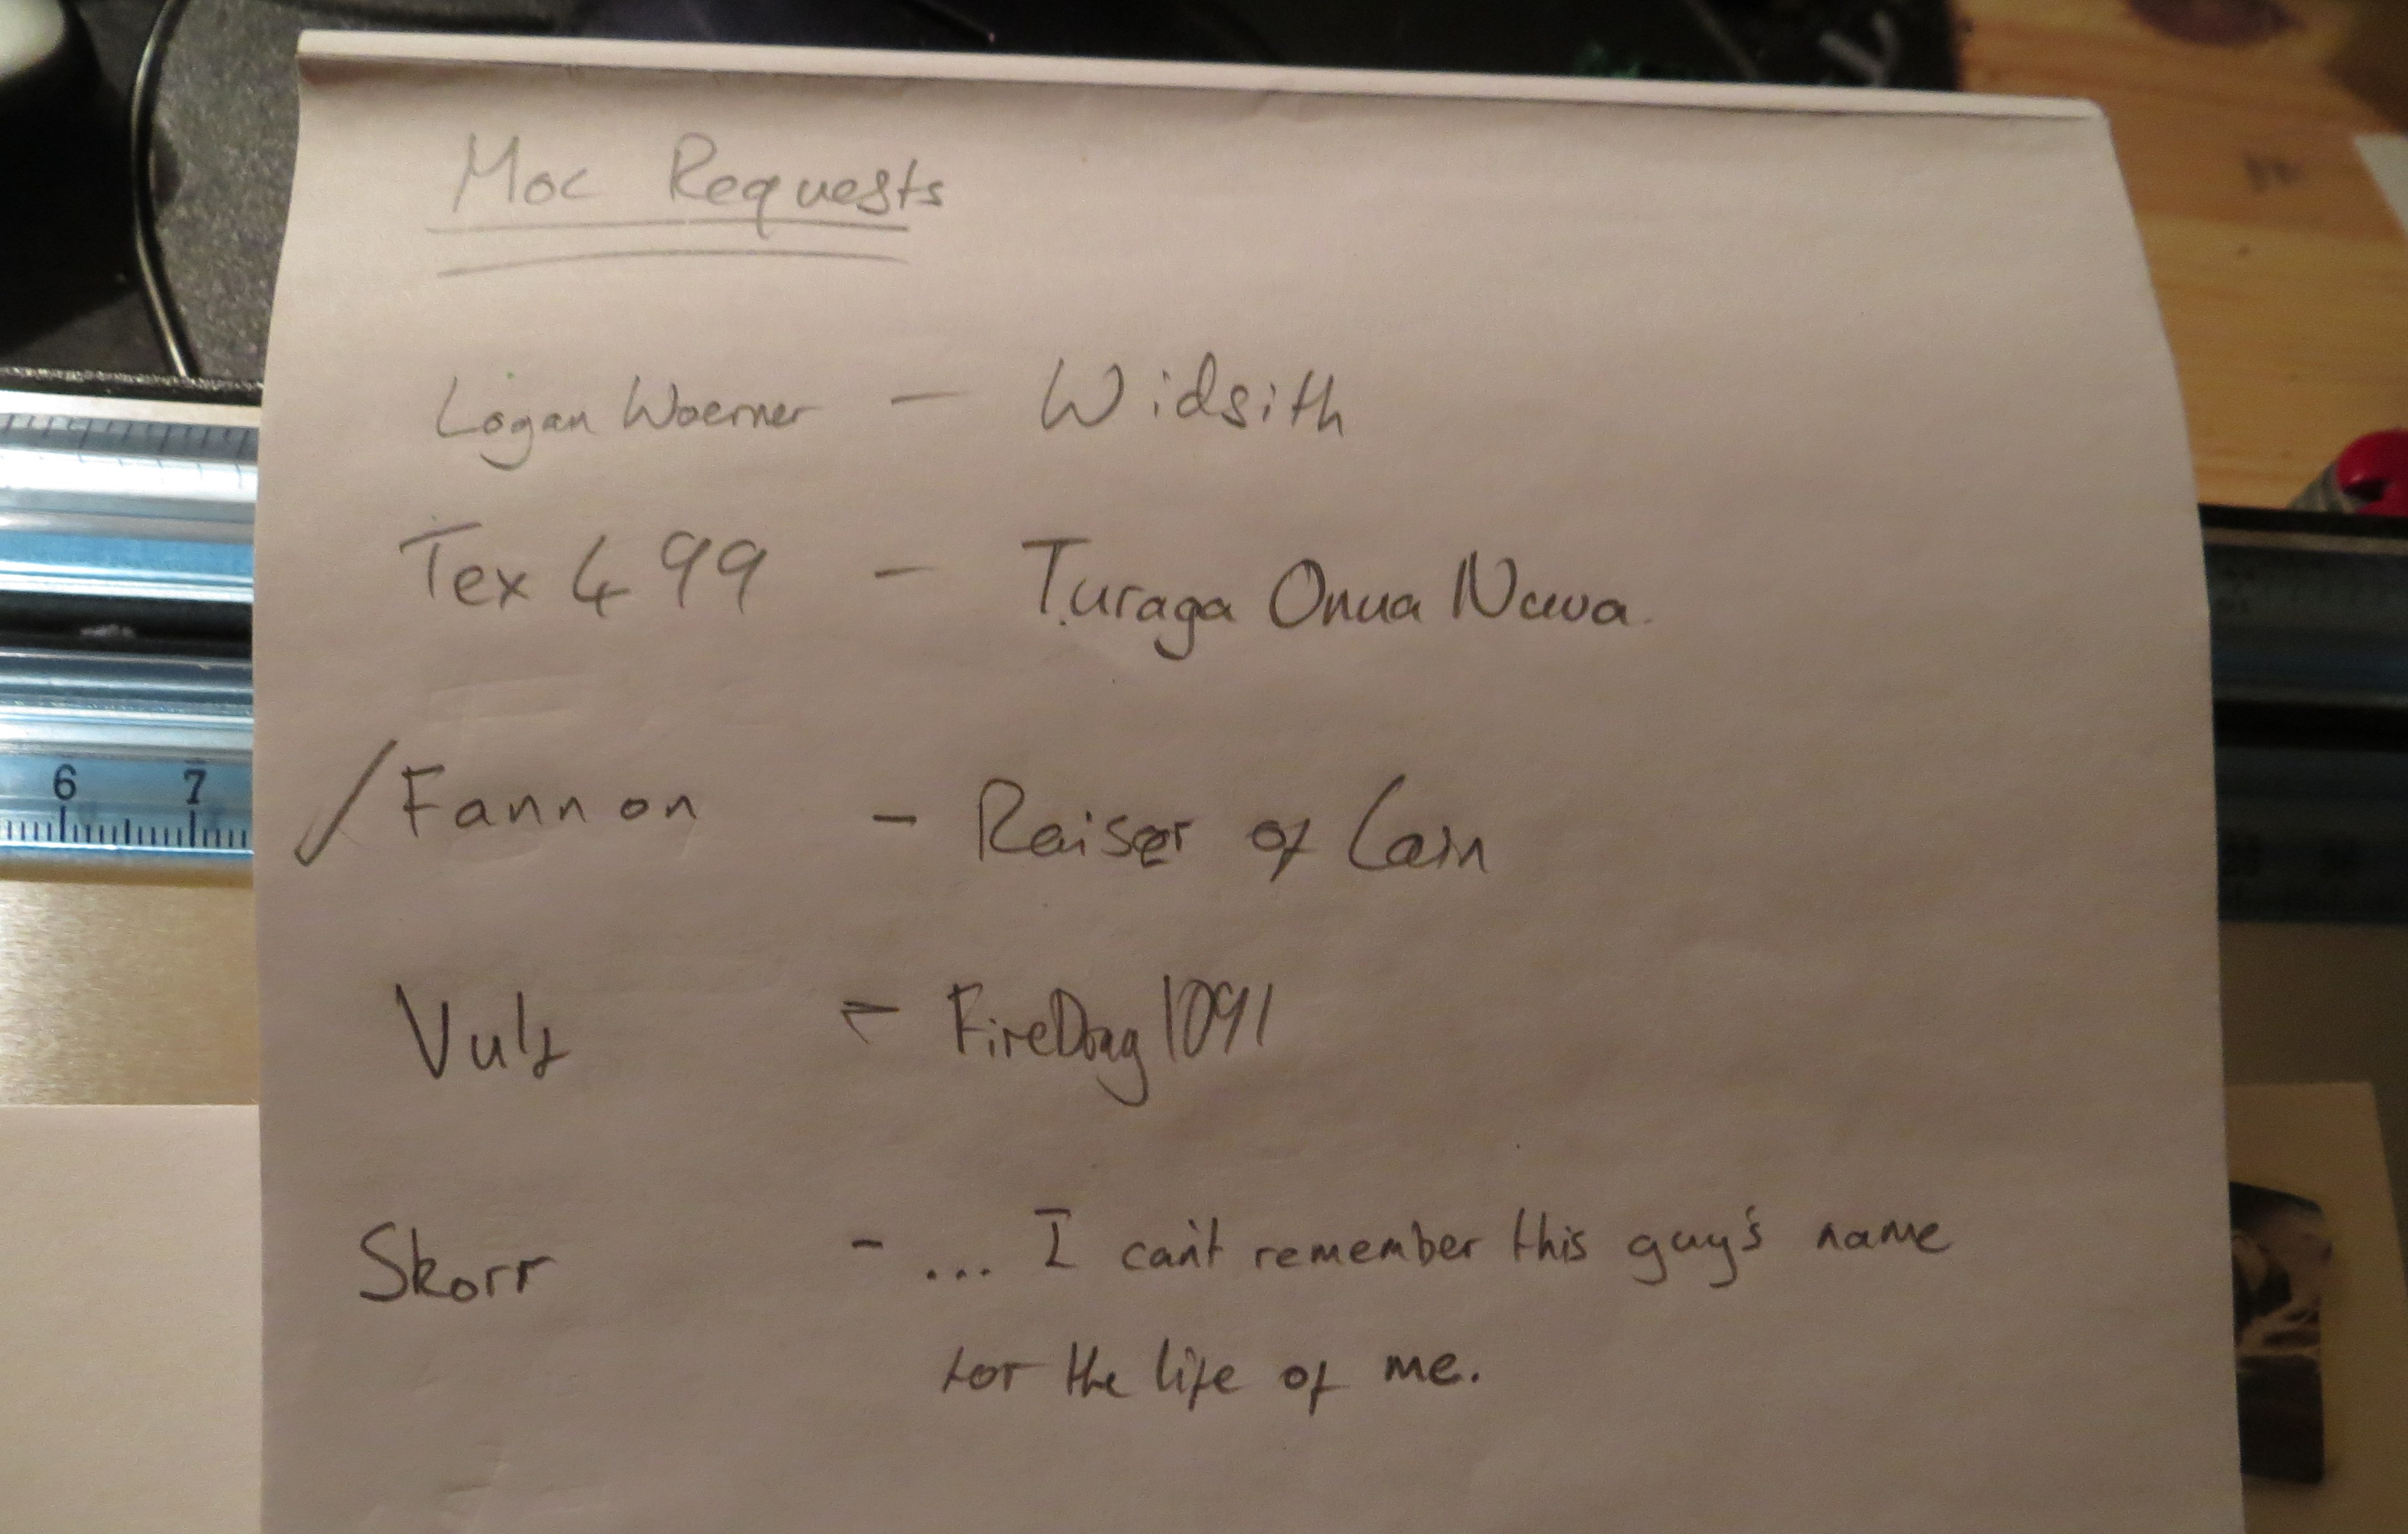 Moc Requests
Logan Woerner — Widsith
Tex 499 - Turaga Onua Nuva.
✓ Fannon - Raiser of Cain
- FireDrag1091
Skorr - ... I can't remember this guy's name
for the life of me.
6 7